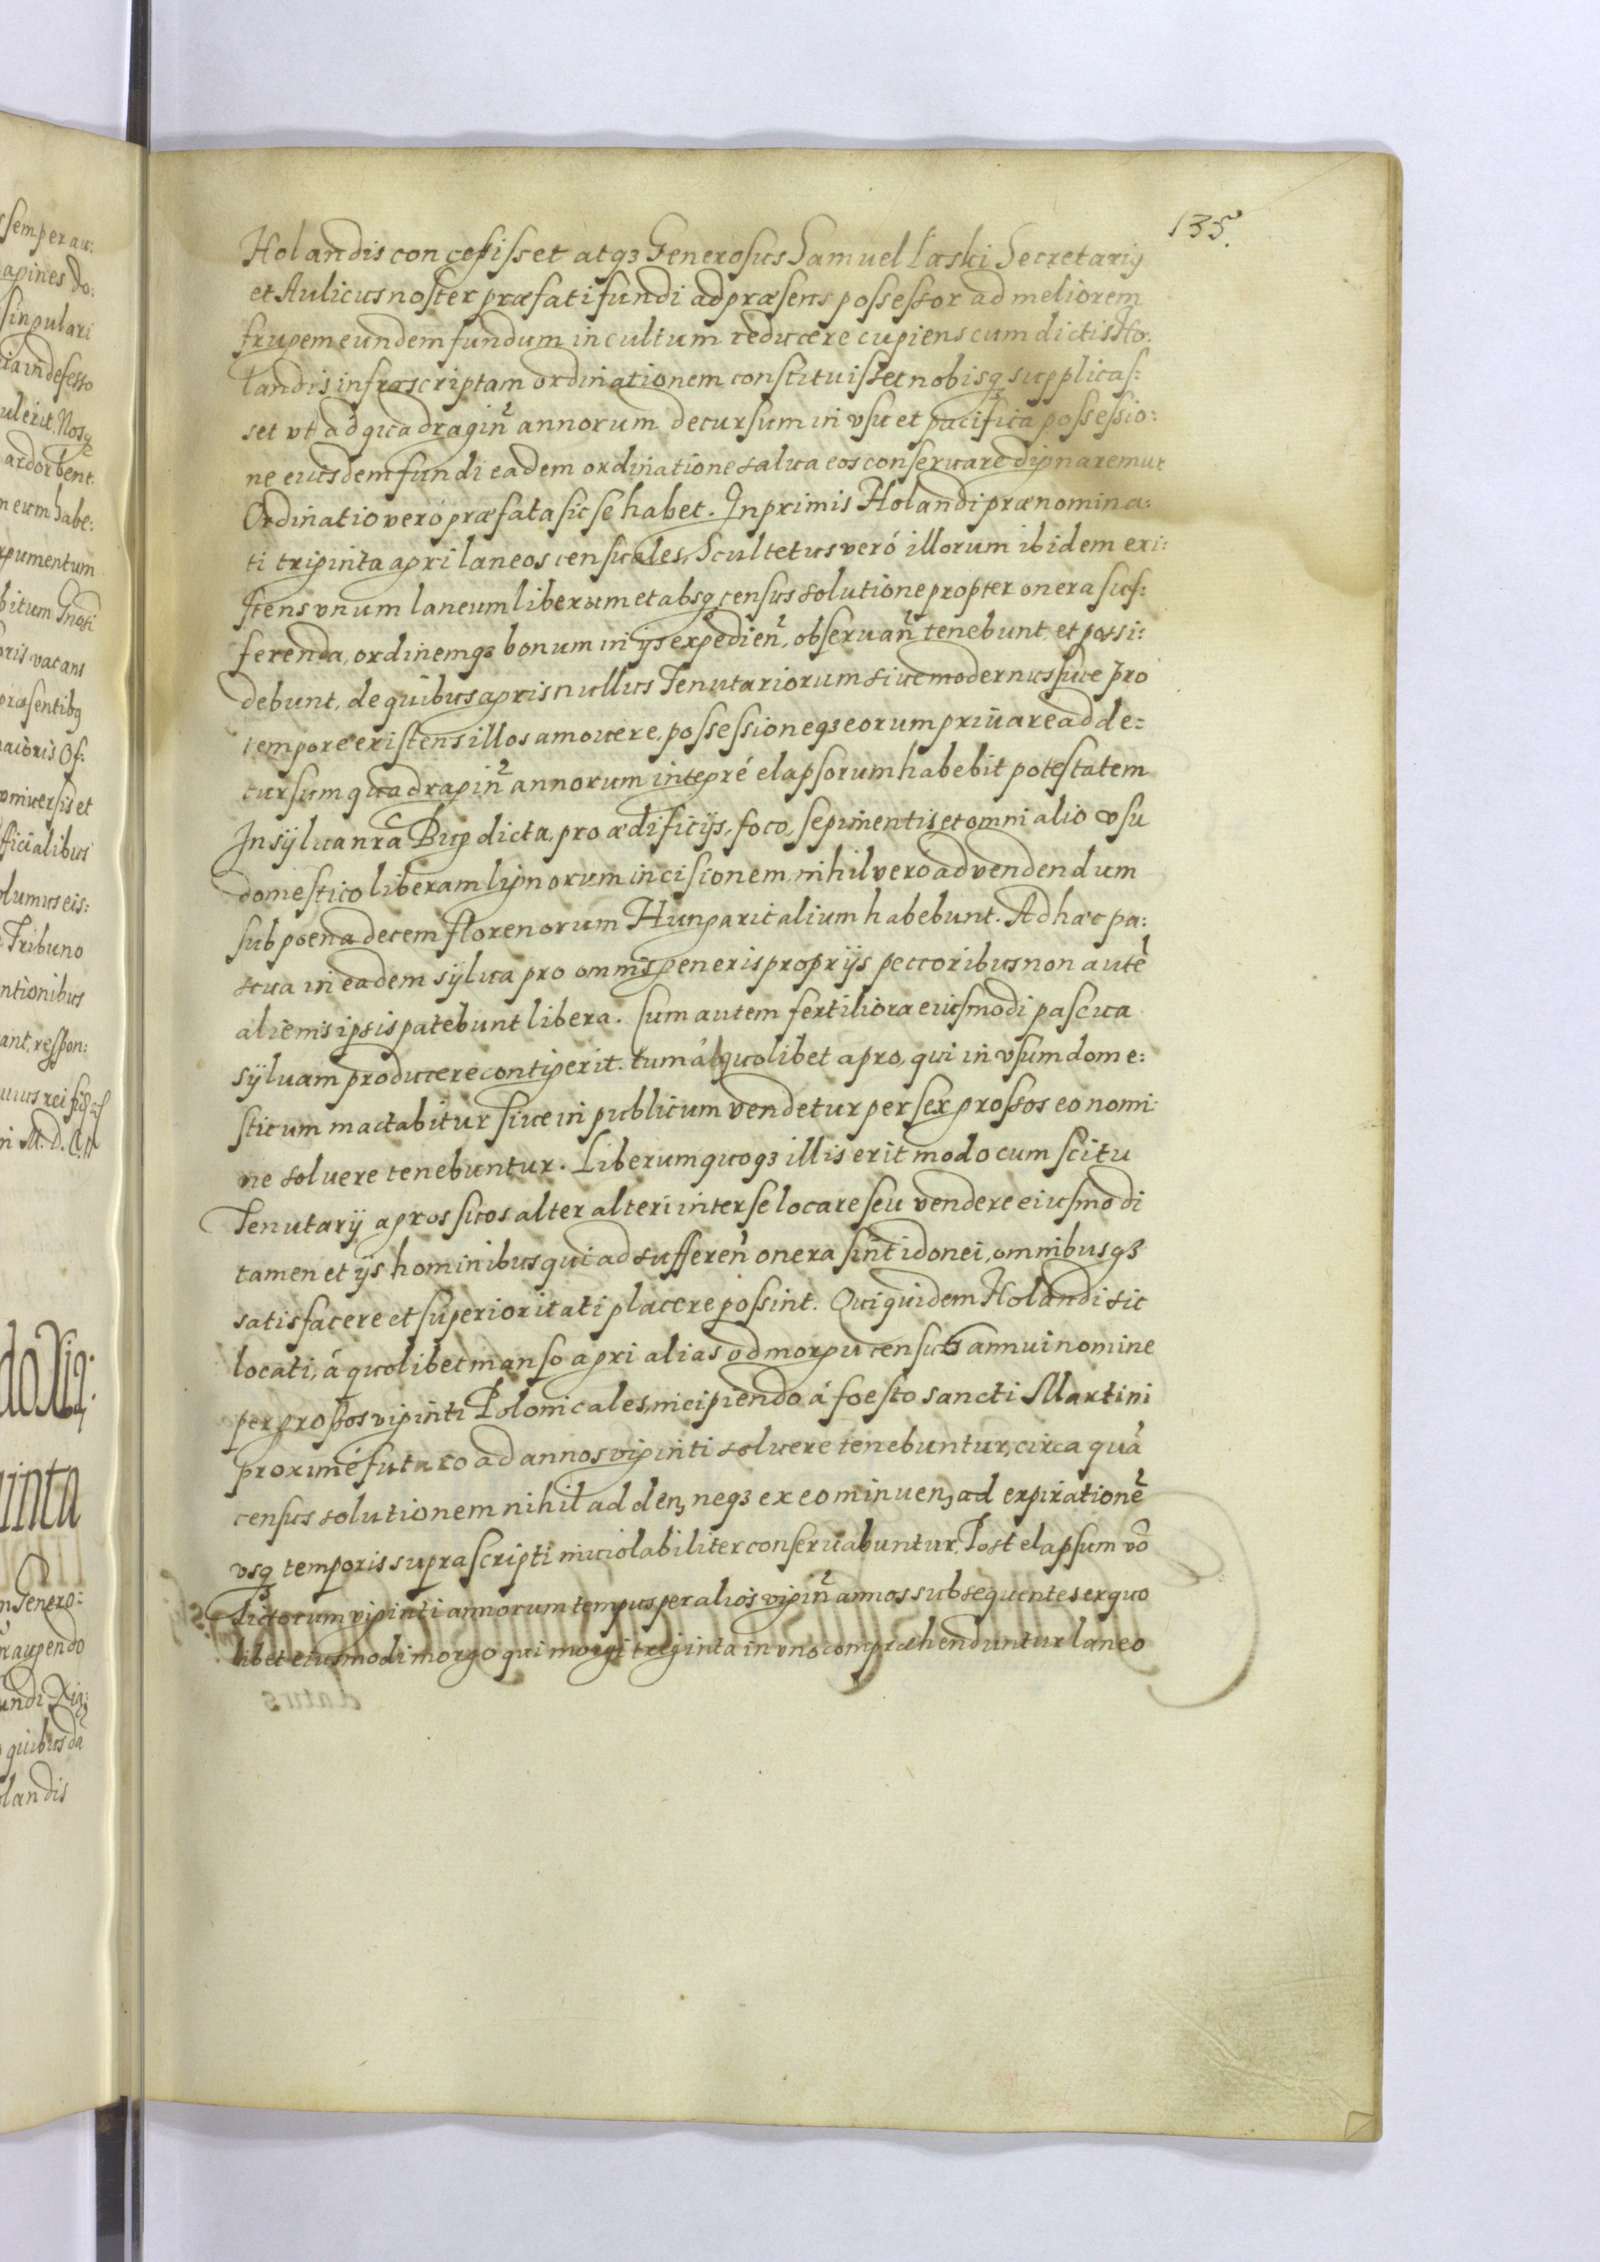 135.
Holandis concessisset atq3 Generosus Samuel Laski Secretariꝯ
et Aulicus noster præfati fundi ad præsens possessor ad meliorem
frugem eundem fundum in cultum reducere cupiens cum dictis Ho:
landis infrascriptam ordinationem constituisset nobisq3 supplicas:
set vt ad quadragin̄ annorum decursum in vsu et pacifica possessio:
ne eiusdem fundi eadem ordinatione salua eos conseruare dignaremur
Ordinatio veró præfata sic se habet. Inprimis Holandi prænomina:
ti triginta agri laneos censuales, Scultetus veró illorum ibidem exi:
stens vnum laneum liberum et absq3 census solutione propter onera suf:
ferenda, ordinemq3 bonum in ijs expedien̄, obseruan̄ tenebunt, et possi:
debunt, de quibus agris nullus Tenutariorum siue modernus siue pro
tempore existens illos amouere, possessioneq3 eorum priuare ad de:
cursum quadragin̄ annorum integré elapsorum habebit potestatem
In sylua nr̄a Bug dicta, pro ædificijs, foco, sepimentis et omni alio vsu
domestico liberam lignorum incisionem, nihil vero ad vendendum
sub poena decem florenorum Hungaricalium habebunt. Ad hæc pa:
scua in eadem sylua pro omnis generis proprijs peccoribus non autē
alienis ipsis patebunt libera. Cum autem fertiliora eiusmodi pascua
syluam producere contigerit. tum á quolibet apro, qui in vsum dome:
sticum mactabitur siue in publicum vendetur per sex grossos eo nomi:
ne soluere tenebuntur. Liberum quoq3 illis erit modo cum scitu
Tenutarij agros suos alter alteri inter se locare seu vendere eiusmodi
tamen et ijs hominibus qui ad sufferen̄ onera sint idonei, omnibusq3
satisfacere et superioritati placere possint. Qui quidem Holandi sic
locati, á quolibet manso agri alias od morgu census annui nomine
per grossos viginti Polonicales, incipiendo á foesto sancti Martini
proximé futuro ad annos viginti soluere tenebuntur, circa quā
census solutionem nihil adden, neq3 ex eo minuen, ad expirationē
vsq3 temporis suprascripti inuiolabiliter conseruabuntur. Post elapsum vō
dictorum viginti annorum tempus per alios vigin̄ annos subsequentes ex quo
libet eiusmodi morgo qui morgi triginta in vno compræhenduntur laneo